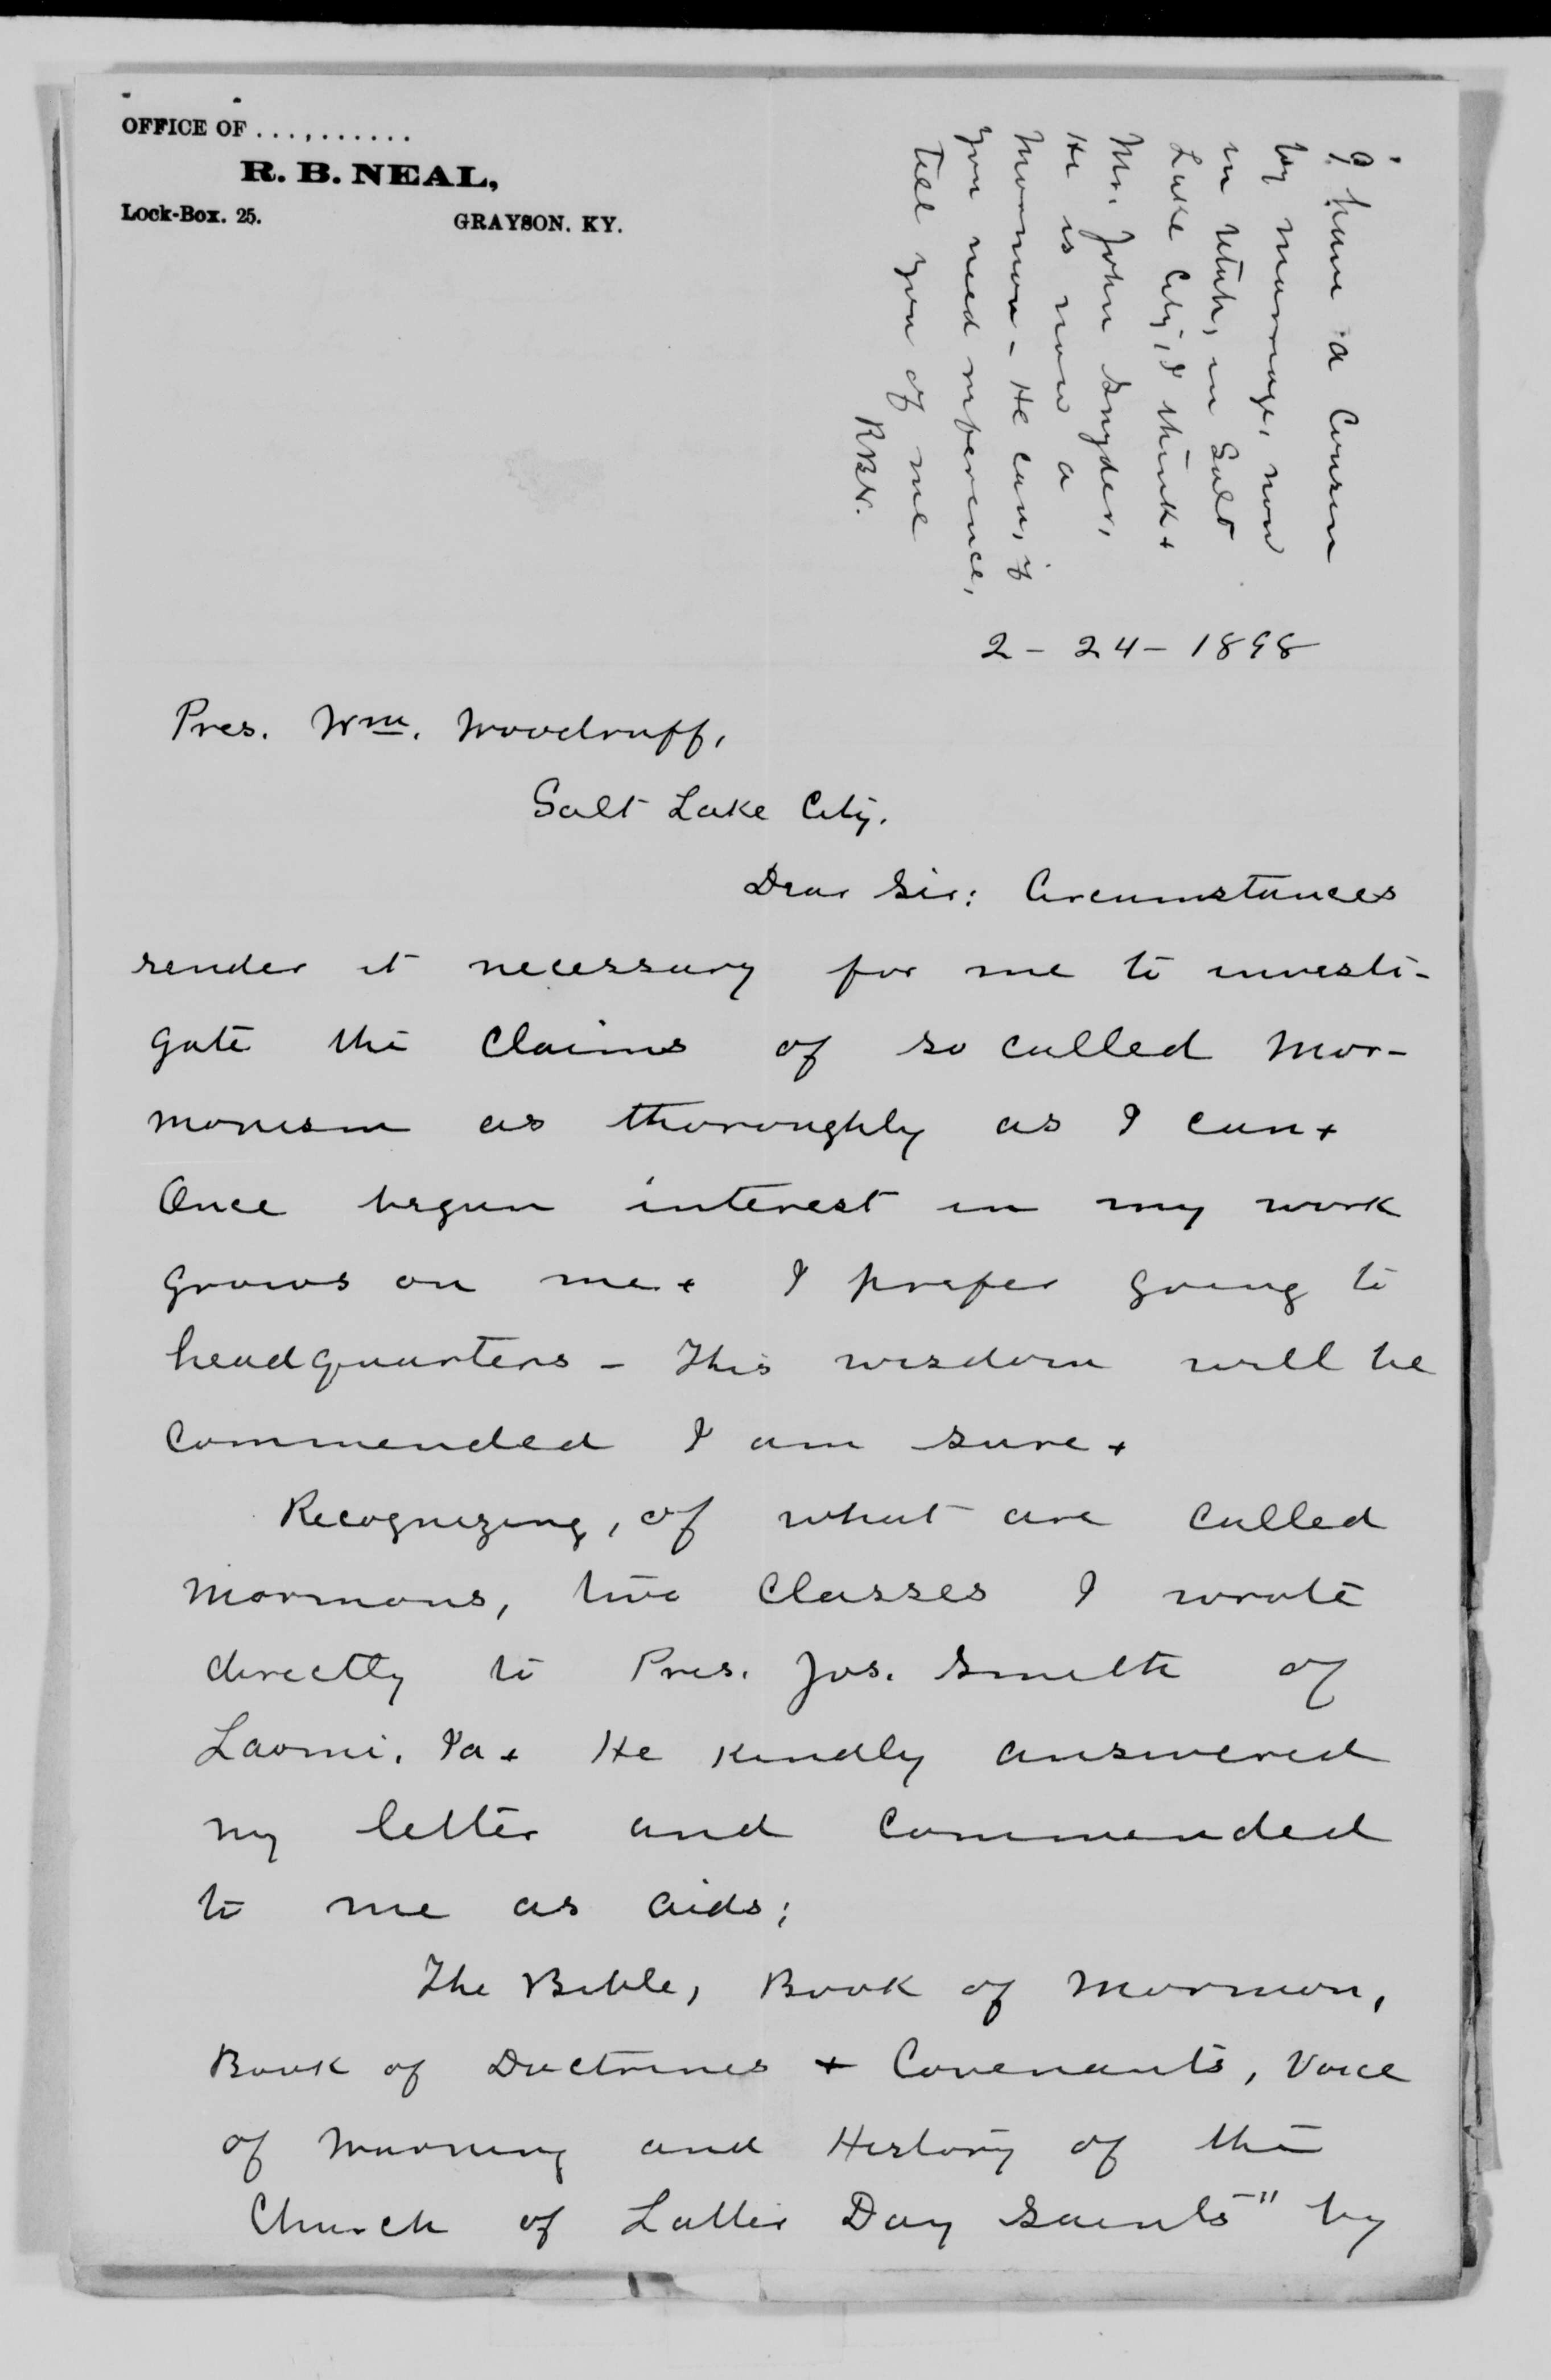 OFFICE OF ...,.......
R. B. NEAL,
Lock-Box. 25. GRAYSON. KY.
I have a Cousin
by marriage, now
in Utah, in Salt
Lake City, I think +
Mr. John Snyder,
He is now a
Mormon - He can, if
you need reference,
Tell you of me
RBN.
2 - 24 - 1898
Pres. Wm. Woodruff,
Salt Lake City.
Dear Sir: Circumstances
render it necessary for me to investi-
gate the claims of so called Mor-
monism as thoroughly as I can +
Once begun interest in my work
grows on me + I prefer going to
headquarters - This wisdom will be
commended I am sure +
Recognizing, of what are called
Mormons, two classes I wrote
directly to Pres. Jos. Smith of
Laomi, Ia + He kindly answered
my letter and commended
to me as aids;
The Bible, Book of Mormon,
Book of Doctrines + Covenants, Voice
of Warning and History of the
Church of Latter Day Saints" by